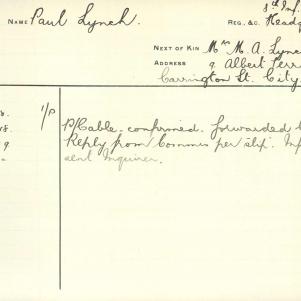 8th Inf.
NAME Paul Lynch. REG. &C. Headq
NEXT OF KIN Mrs M. A. Lync
ADDRESS 9 Albert Terr
Carrington St. City
1/P P/Cable confirmed. Forwarded
8. Reply from Commrs per slip. Inf
9 sent Inquirer.